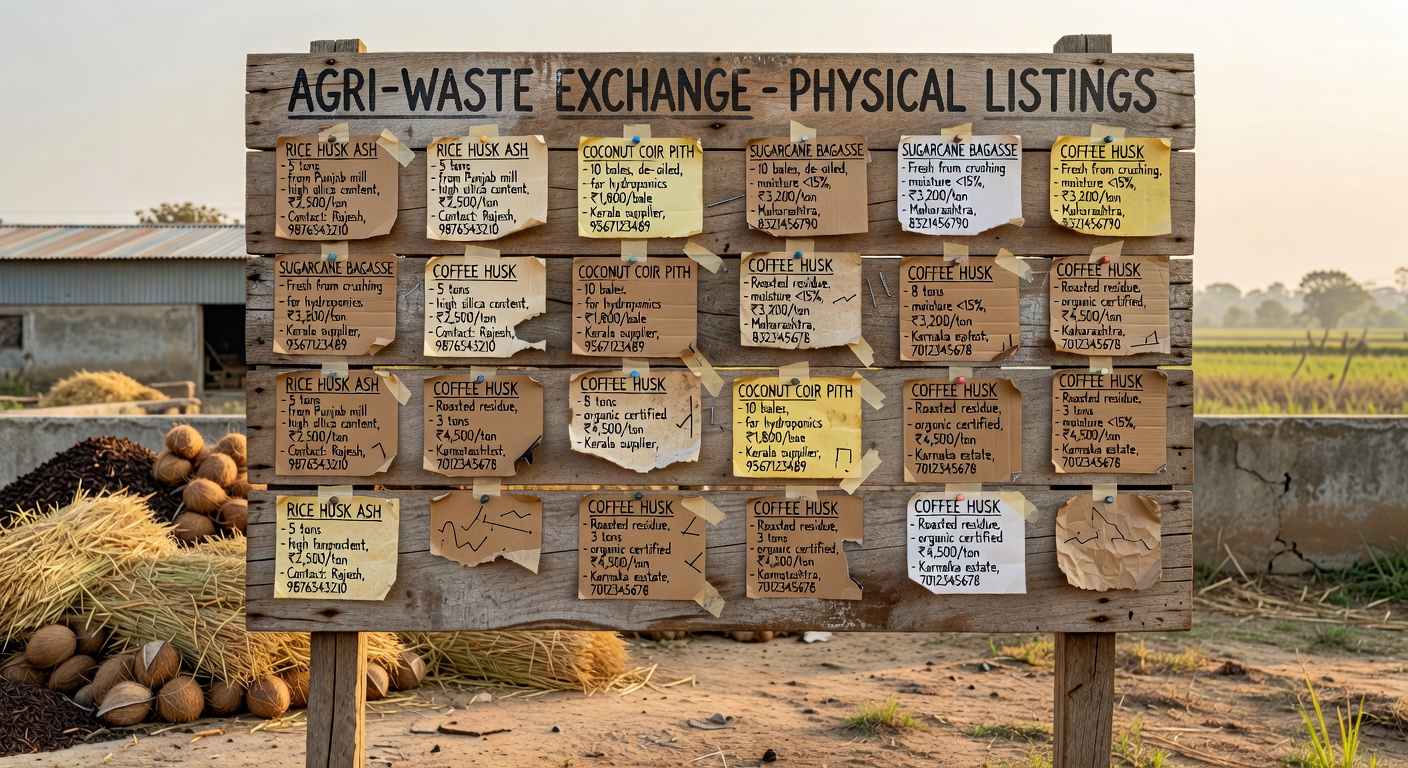 AGRI-WASTE EXCHANGE - PHYSICAL LISTINGS
RICE HUSK ASH
- 5 tons
- from Punjab mill
- high silica content,
₹2,500/ton
- Contact: Rajesh,
9876543210
RICE HUSK ASH
- 5 tons
- from Punjab mill
- high silica content,
₹2,500/ton
- Contact: Rajesh,
9876543210
COCONUT COIR PITH
- 10 bales, de-oiled,
- for hydroponics
- ₹1,800/bale
- Kerala supplier,
9567123489
SUGARCANE BAGASSE
- 10 bales, de-oiled,
moisture <15%,
- ₹3,200/ton
- Maharashtra,
8321456790
SUGARCANE BAGASSE
- Fresh from crushing,
moisture <15%,
₹3,200/ton
- Maharashtra,
8321456790
COFFEE HUSK
- Fresh from crushing,
moisture <15%,
- ₹3,200/ton
- Maharashtra,
8321456790
SUGARCANE BAGASSE
- Fresh from crushing
- for hydroponics
- Kerala supplier,
7012345678
COFFEE HUSK
- 5 tons
- high silica content,
₹2,500/ton
- Contact: Rajesh,
9876543210
COCONUT COIR PITH
- 10 bales,
- for hydroponics
₹1,800/ton
- Kerala supplier,
9567123489
COFFEE HUSK
- Roasted residue,
moisture <15%,
₹3,200/ton
- Maharashtra,
COFFEE HUSK
- 8 tons
- moisture <15%,
- ₹3,200/ton
7012345678
COFFEE HUSK
- Roasted residue,
organic certified,
₹4,500/ton
7012345678
RICE HUSK ASH
- 5 tons
- from Punjab mill
- high silica content,
₹2,500/ton
- Contact: Rajesh,
COFFEE HUSK
- Roasted residue,
- 3 tons
- ₹4,500/ton
7012345678
COFFEE HUSK
- organic certified
- Kerala supplier,
COCONUT COIR PITH
- 10 bales,
- for hydroponics
- Kerala supplier,
9567123489
COFFEE HUSK
- Roasted residue,
- organic certified,
₹4,500/ton
7012345678
COFFEE HUSK
- Roasted residue,
3 tons
moisture <15%,
- ₹4,500/ton
7012345678
RICE HUSK ASH
- 5 tons
₹2,500/ton
- Contact: Rajesh,
9876543210
COFFEE HUSK
- Roasted residue,
3 tons
- organic certified
7012345678
COFFEE HUSK
- Roasted residue,
3 tons
- organic certified
7012345678
COFFEE HUSK
- Roasted residue,
- organic certified
₹4,500/ton
7012345678